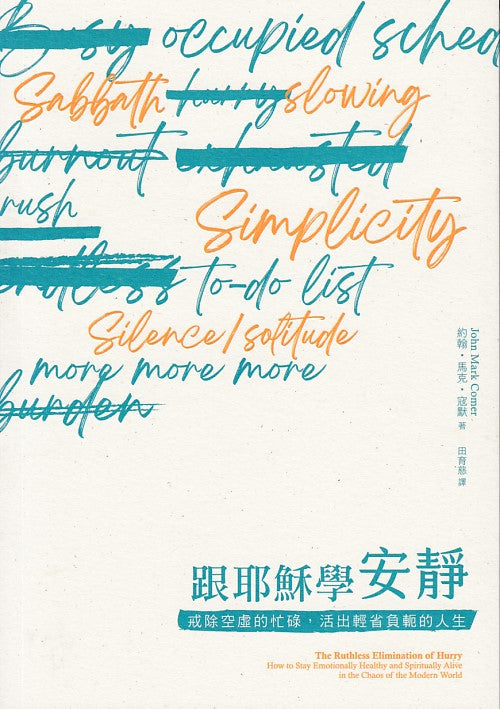 Busy occupied sched
Sabbath hurry slowing
burnout exhausted
rush
Simplicity
endless to-do list
Silence/solitude
more more more
burden
John Mark Comer
約翰・馬克・寇默 著
田育慈 譯
跟耶穌學安靜
戒除空虛的忙碌，活出輕省負軛的人生
The Ruthless Elimination of Hurry
How to Stay Emotionally Healthy and Spiritually Alive
in the Chaos of the Modern World